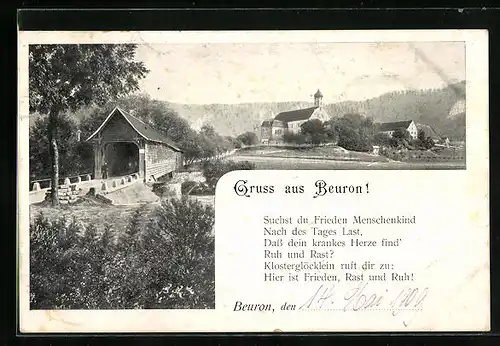 Gruss aus Beuron!
Suchst du Frieden Menschenkind
Nach des Tages Last,
Daß dein krankes Herze find'
Ruh und Rast?
Klosterglöcklein ruft dir zu:
Hier ist Frieden, Rast und Ruh!
Beuron, den 14. Mai